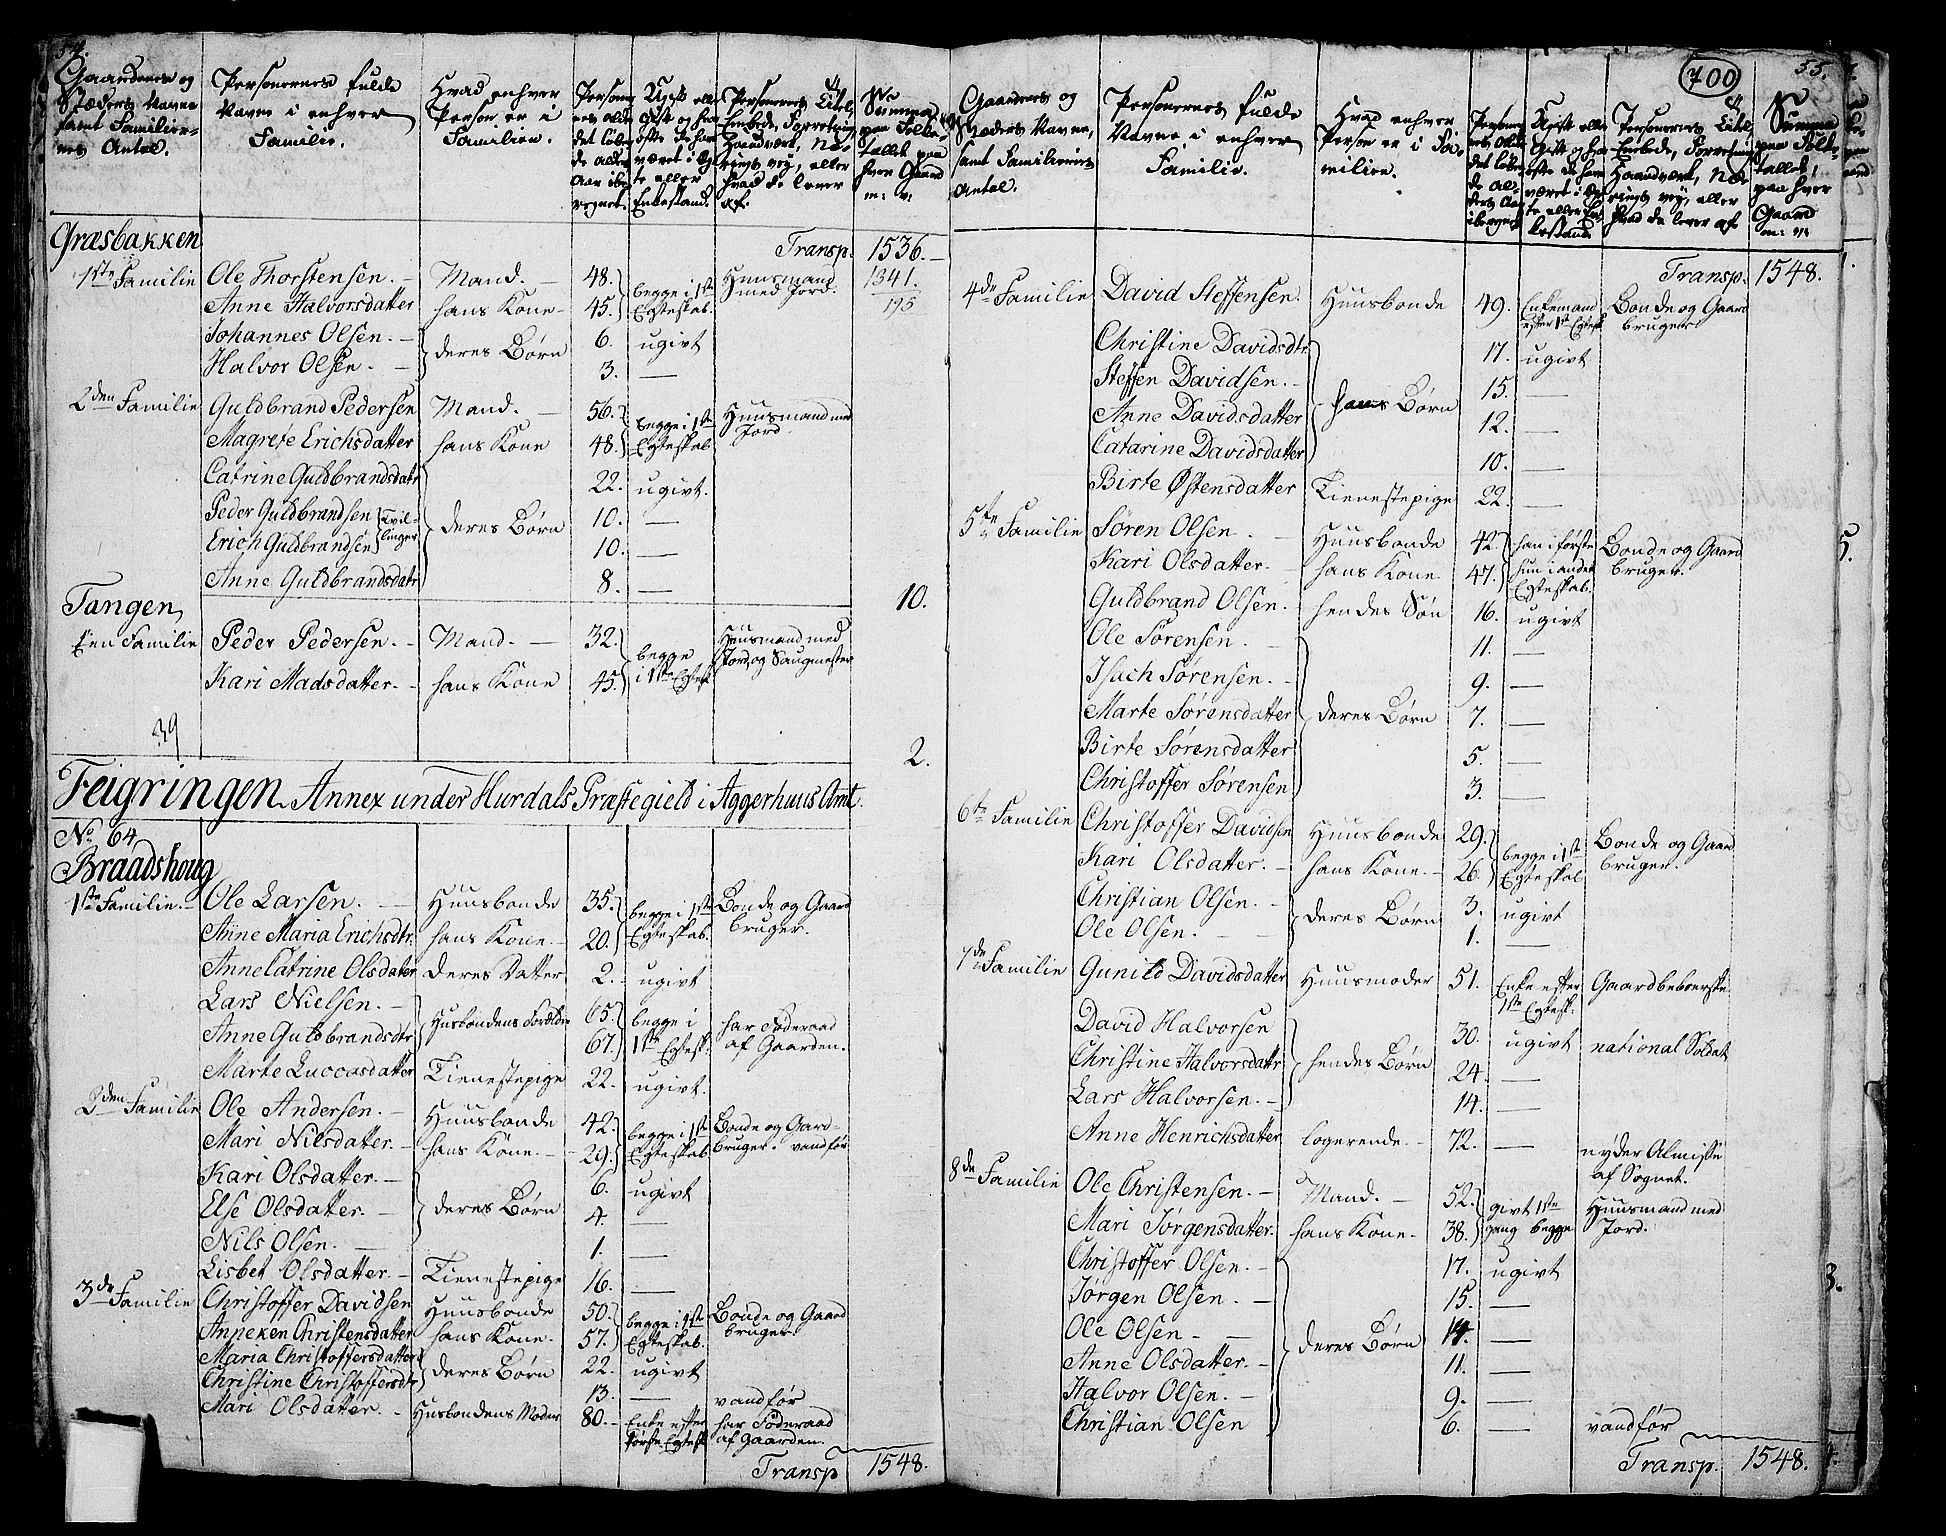 54.
Gaardenes og Stæders Navne samt Familiernes Antal.
Personernes fulde Navne i enhver Familie.
Hvad enhver Person er i Familien.
Personernes Alder det løbende Alders Aar iberegnet.
Ugift eller Gift og hvor ofte de have været i Egte eller Enkestand.
Personernes Titel, Embede, Forretning, Haandværk, Nærings vey, eller hvad de lever af.
Summa paa Folketallet paa hver Gaard
Græsbakken Transp. 1536.
1ste Familie Ole Thorstensen. Mand. 48. begge i 1ste Egteskab. Huusmand med Jord. 1341.
Anne Halvorsdatter hans Kone 45. 195
Johannes Olsen. deres Børn 6. ugivt
Halvor Olsen. 3. —
2den Familie Guldbrand Pedersen Mand. 56. begge i 1ste Egteskab Huusmand med Jord
Magrete Erichsdatter hans Kone 48.
Catrine Guldbrandsdatr deres Børn 22. ugivt.
Peder Guldbrandsen Tvillinger 10. —
Erich Guldbrandsen 10. —
Anne Guldbrandsdatr 8. — 10.
Tangen
Een Familie Peder Pedersen. Mand. 32. begge i 1ste Egtesk. Huusmand med Jord, og Saugmester
Kari Madsdatter. hans Kone 45.
39 2.
Feigringen Annex under Hurdals Præstegield i Aggerhuus Amt.
No 64
Braadshoug
1ste Familie. Ole Larsen. Huusbonde 35. begge i 1ste Egteskab. Bonde og Gaard bruger.
Anne Maria Erichsdtr. hans Kone. 20.
Anne Catrine Olsdater deres Datter 2. ugivt
Lars Nielsen. Husbondens Forældre 65. begge i 1ste Egtesk. har Føderaad af Gaarden.
Anne Guldbrandsdtr 67.
Marte Luccasdatter Tienestepige 22. ugivt.
2den Familie Ole Andersen. Huusbonde 42. begge i 1ste Egteskab Bonde og Gard- bruger. vandfør
Mari Nilsdatter. hans Kone. 29.
Kari Olsdatter. deres Børn 6. ugivt
Else Olsdatter. 4. —
Nils Olsen. 1. —
Lisbet Olsdatter. Tienestepige 16. —
3de Familie Christoffer Davidsen Huusbonde 50. begge i 1ste Egteskab. Bonde og Gaard bruger.
Anneken Christensdatter hans Kone. 57.
Maria Christoffersdatter deres Børn 22. ugivt
Christine Christoffersdr 13. — vandfør
Mari Olsdatter. Husbondens Moder 80. Enke efter første Egtesk. har Føderaad af Gaarden.
Transp 1548.
700
55.
Gaardenes og Stæders Navne, samt Familiernes Antal.
Personernes fulde Navne i enhver Familie.
Hvad enhver Person er i Familien.
Personernes Alder det løbende Alders Aar iberegnet
Ugift eller Gift og hvor ofte de have været i Egte eller Enkestand
Personernes Titel, Embede, Forretning, Haandværk, Nærings vey, eller hvad de lever af
Summa paa Folketallet, paa hver Gaard
Transp. 1548.
4de Familie David Steffensen. Huusbonde 49. Enkemand efter 1ste Egtesk. Bonde og Gaard bruger
Christine Davidsdtr hans Børn 17. ugivt
Steffen Davidsen. 15. —
Anne Davidsdatter 12. —
Catarine Davidsdatter 10. —
Birte Østensdatter Tienestepige 22. —
5te Familie Søren Olsen Huusbonde 42. han i første hun i andet Egteskab. Bonde og Gaard bruger.
Kari Olsdatter. hans Kone 47.
Guldbrand Olsen. hendes Søn 16. ugivt
Ole Sørensen. deres Børn 11. —
Isach Sørensen. 9. —
Marte Sørensdatter 7. —
Birte Sørensdatter 5. —
Christoffer Sørensen 3. —
6te Familie Christoffer Davidsen Huusbonde 29. begge i 1ste Egteskab Bonde og Gaard bruger.
Kari Olsdatter. hans Kone. 26.
Christian Olsen. deres Børn 3. ugivt
Ole Olsen. 1. —
7de Familie Gunild Davidsdatter Huusmoder 51. Enke efter 1ste Egtesk. Gaardbeboerske
David Halvorsen hendes Børn 30. ugivt national Soldat
Christine Halvorsdatr 24. —
Lars Halvorsen. 14. —
Anne Henrichsdatter logerende. 72. — nyder Almisse af Sognet.
8de Familie Ole Christensen. Mand. 52. givt 1ste gang begge Huusmand med Jord.
Mari Jørgensdatter. hans Kone. 38.
Christoffer Olsen. deres Børn 17. ugivt
Jørgen Olsen. 15. —
Ole Olsen 14. —
Anne Olsdatter. 11. —
Halvor Olsen. 9. —
Christian Olsen 6. — vandfør
Transp. 1548.